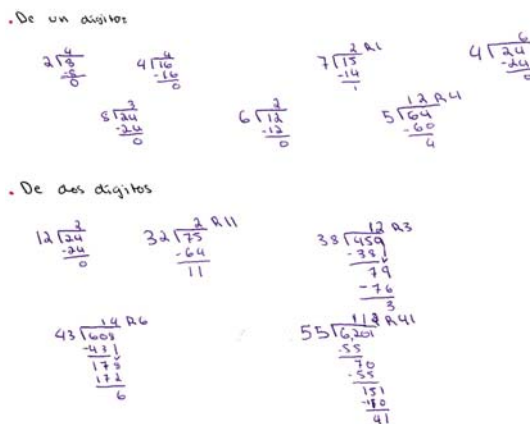 . De un digitos
4
2√8
-8
0
4
4√16
-16
0
2 R1
7√15
-14
1
6
4√24
-24
0
3
8√24
-24
0
2
6√12
-12
0
12 R4
5√64
-60
4
. De dos digitos
2
12√24
-24
0
2 R11
32√75
-64
11
12 R3
38√459
-38
79
-76
3
14 R6
43√608
-43
178
172
6
R41
55√6,201
-55
70
-55
151
-110
41